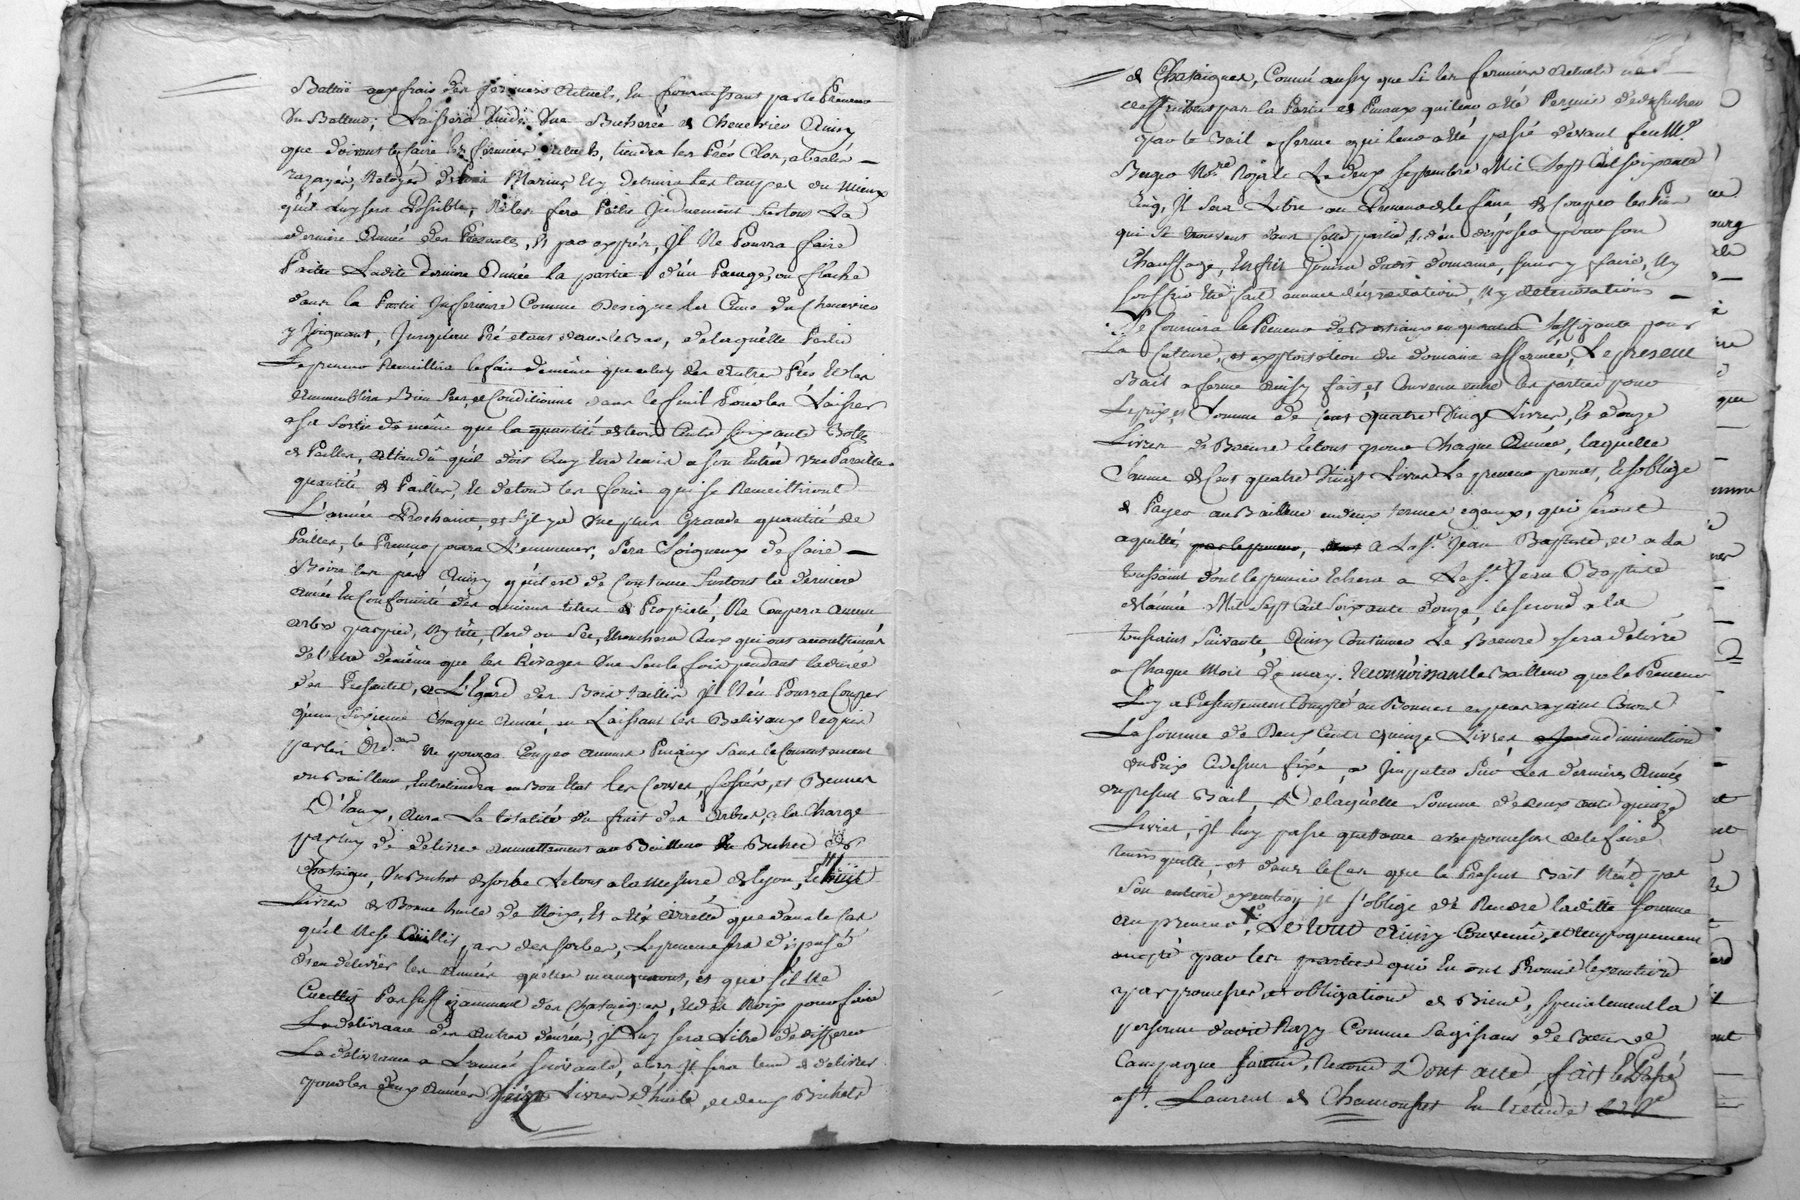 Battue aux frais des fermiers actuels, en fournissant par le Preneur
Un Batteur; Laissera Une Bicherée de Cheneviere Ainsy
que doivent le faire les fermiers actuels, tiendra les Prés Clos,
Marins Ny detruira les taupes du Mieux
qu'il Luy sera Possible, Ne les fera Paitre Induement surtout La
derniere Année des Presentes, Il Ne Pourra faire
Paitre Ladite derniere Année la partie d'un Paurage, ou
dans la Partie Inferieure Comme Designe du Chenevier
y Joignant, Jusqu'au Pré etant dans le Bas, de laquelle Partie
Le preneur Recueillira le foin de même que celuy des Autres Prés Et les
Bien Sec, et Conditionné dans le fenil Pour les Laisser
a sa Sortie de même que la quantité de trois Cents soixante Bottes
de Pailles, attendu qu'il doit Luy Etre remis a son Entrée Une Pareille
quantité de Pailles, Et de tous les foins qui se Recueilliront
L'année Prochaine, et s'il y a Une plus Grande quantité de
Pailles, le Preneur poura L'emmener, Sera Soigneux de faire
Boire les prés Ainsy qu'il est de Coutume Surtout la derniere
année En Conformité des anciens titres de Propriété, Ne Coupera aucun
arbre par pied, Ny tête, Verd ou Sec, Ebranchera Ceux qui ont accoutumés
de l'Etre de même que les Rivages Une Seule fois pendant la durée
des Presentes, a L'Egard des Bois taillis Il N'en Pourra Couper
qu'un Sixieme Chaque Année, en Laissant les Balivaux requis
par les Ord.ces Ne pourra Couper aucuns Pinaux Sans le Consentement
du Bailleur, Entretiendra en Bon Etat les Terres, fossés, et Bennes
D'Eaux, Aura La totalité du fruit des Arbres, a la Charge
par luy de délivrer annuellement au Bailleur Un Bichet de
Chataignes, Un Bichet de sorbe Le tout a la Mesure de Lyon, Et huit
Livres de Bonne huile de Noix, Et a été arretté que dans le Cas
qu'il Ne se Cuillit pas des sorbes, Le preneur sera dispensé
d'en délivrer les Années qu'elles manqueront, et que s'il Ne
Cueillit Pas suffisamment des Chataignes, Et des Noix pour faire
La delivrance des autres denrées, Il Luy sera Libre de differer
La délivrance a L'année Suivante, alors Il sera tenu de délivrer
pour les deux Années Seize Livres d'huile, et deux Bichets
de Chataignes, Comme aussy que Si les fermiers actuels ne
par la Partie de Pinaux qu'il leur a été Permis de deffricher
par le Bail a ferme qui leur a été passé devant feu Me
N.re Royal Le deux septembre Mil Sept Cent soixante
Cinq, Il Sera Libre au Preneur de le faire de Couper les Pins
qui Se trouvent dans Cette partie & d'en disposer pour son
Chauffage, Enfin Jouira dudit domaine, sans y faire, Ny
Souffrir Etre fait aucune dégradation, Ny déterioration
Se fournira le Preneur de Bestiaux en quantité Suffisante pour
La Culture, et exploitation du domaine affermé, Le present
Bail a ferme Ainsy fait, et Convenu entre les parties pour
Le prix, et Somme de Cent quatre Vingt Livres, Et douze
Livres de Beurre le tout pour Chaque Année, laquelle
Somme de Cent quatre Vingt Livres Le preneur promet, Et s'oblige
de Payer au Bailleur en deux termes egaux, qui seront
aquittés, a La St. Jean Baptiste, et a La
toussaint dont le premier Echera a La St. Jean Baptiste
de L'année Mil Sept Cent Soixante douze le Second a la
toussaint Suivante, Ainsy Continuer Le Beurre sera delivré
a Chaque Mois de may. Reconnoissant le Bailleur que le Preneur
Luy a Presentement Compté en Bonnes especes ayant Cours
La Somme de Deux Cents quinze Livres en diminution
du Prix Cy dessus fixé, a Imputer Sur Les dernieres Années
du present Bail, De laquelle Somme de deux Cents quinze
Livres, Il Luy passe quittance avec promesse de le faire
tenir quitte, et dans le Cas que le Present Bail N'eut pas
Son entiere execution Il s'oblige de Rendre laditte somme
au preneur, Le tout Ainsy Convenu, et reciproquement
accepté par les parties qui En ont Promis l'execution
par promesses, et obligations de Biens, specialement la
personne dudit Razy Comme s'agissant de Biens de
Campagne Dont acte, fait Et Passé
a St. Laurent de Chamousset En L'etude